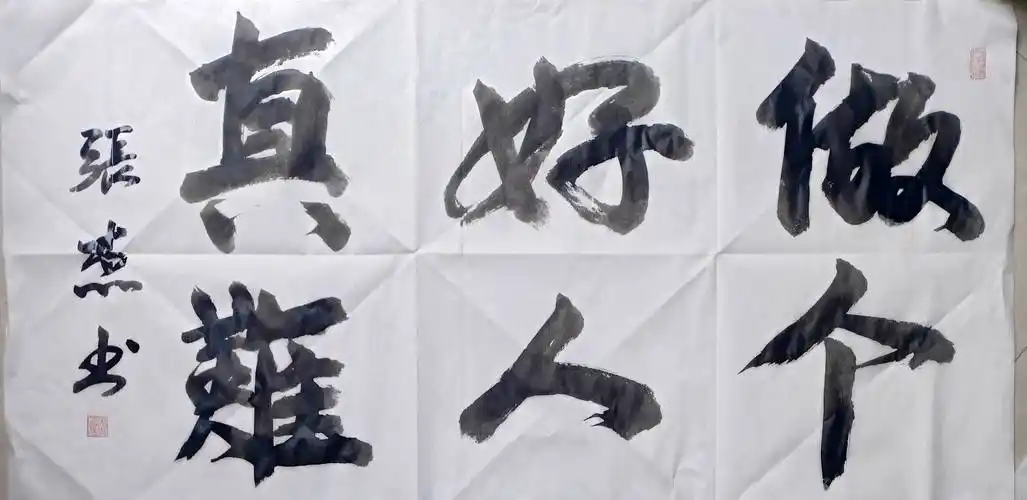 做个
好人
真難
張燕书